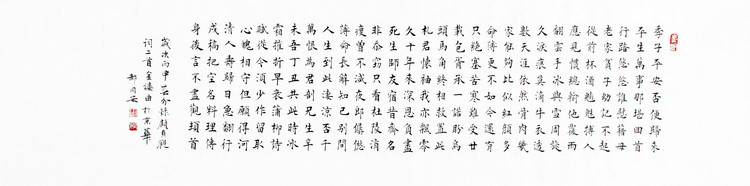 季子平安否便歸來
平生萬事那堪回首
行路悠悠誰慰藉母
老家貧子幼記不起
從前杯酒魑魅搏人
應見慣總輸他覆雨
翻雲手冰與雪周旋
久淚痕莫滴牛衣透
數天涯依然骨肉幾
家能夠比似紅顏多
命薄更不如今還有
只絕塞苦寒難受廿
載包胥承一諾盼烏
頭馬角終相救置此
札君懷袖我亦飄零
久十年來深恩負盡
死生師友宿昔齊名
非忝竊只看杜陵消
瘦曾不減夜郎僝僽
薄命長辭知己別問
人生到此淒涼否千
萬恨為君剖兄生辛
未吾丁丑共此時冰
霜摧折早衰蒲柳詞
賦從今須少作留取
心魄相守但願得河
清人壽歸日急翻行
戍稿把空名料理傳
身後言不盡觀頓首
歲次丙申錄顧貞觀
詞二首金縷曲於京華